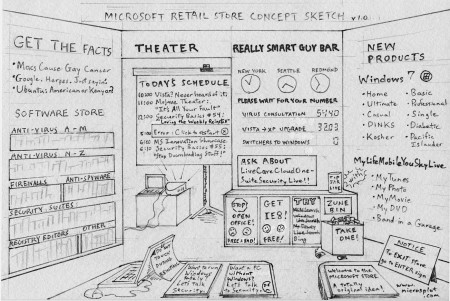 MICROSOFT RETAIL STORE CONCEPT SKETCH v1.0
GET THE FACTS
• Macs Cause Gay Cancer
• Google: Horses. Just sayin'
• Ubuntu: American or Kenyan?
SOFTWARE STORE
ANTI-VIRUS A-M
ANTI-VIRUS N-Z
FIREWALLS
ANTI-SPYWARE
SECURITY SUITES
REGISTRY EDITORS
OTHER
THEATER
TODAY'S SCHEDULE
Vista? Never heard of it.
11:00 Mojave Theater:
"It's All Your Fault"
Security Basics #54:
Error: Click to restart
6:00 MS Innovation Showcase
Security Basics #55:
"Stop Downloading Stuff!"
REALLY SMART GUY BAR
NEW YORK
SEATTLE
REDMOND
PLEASE WAIT FOR YOUR NUMBER
VIRUS CONSULTATION 5440
VISTA → XP UPGRADE 3203
SWITCHERS TO WINDOWS 0
ASK ABOUT
LiveCare CloudOne-
Suite Security Live!!
STOP
OPEN
OFFICE!
GET
IE8!
FREE!
TRY
ZUNE
BIN
TAKE
ONE!
NEW
PRODUCTS
Windows 7
• Home
• Basic
• Ultimate
• Professional
• Casual
• Single
• DINKS
• Diabetic
• Kosher
• Pacific
Islander
MyLifeMobileYouSkyLive
• MyTunes
• MyPhoto
• MyMovie
• MyDVD
• Band in a Garage
NOTICE
To EXIT store
go to ENTER sign
Want to run
Windows?
Let's talk
Security.
Want a PC
without
Windows?
Let's talk
Welcome to the
MICROSOFT STORE
A totally
original idea!